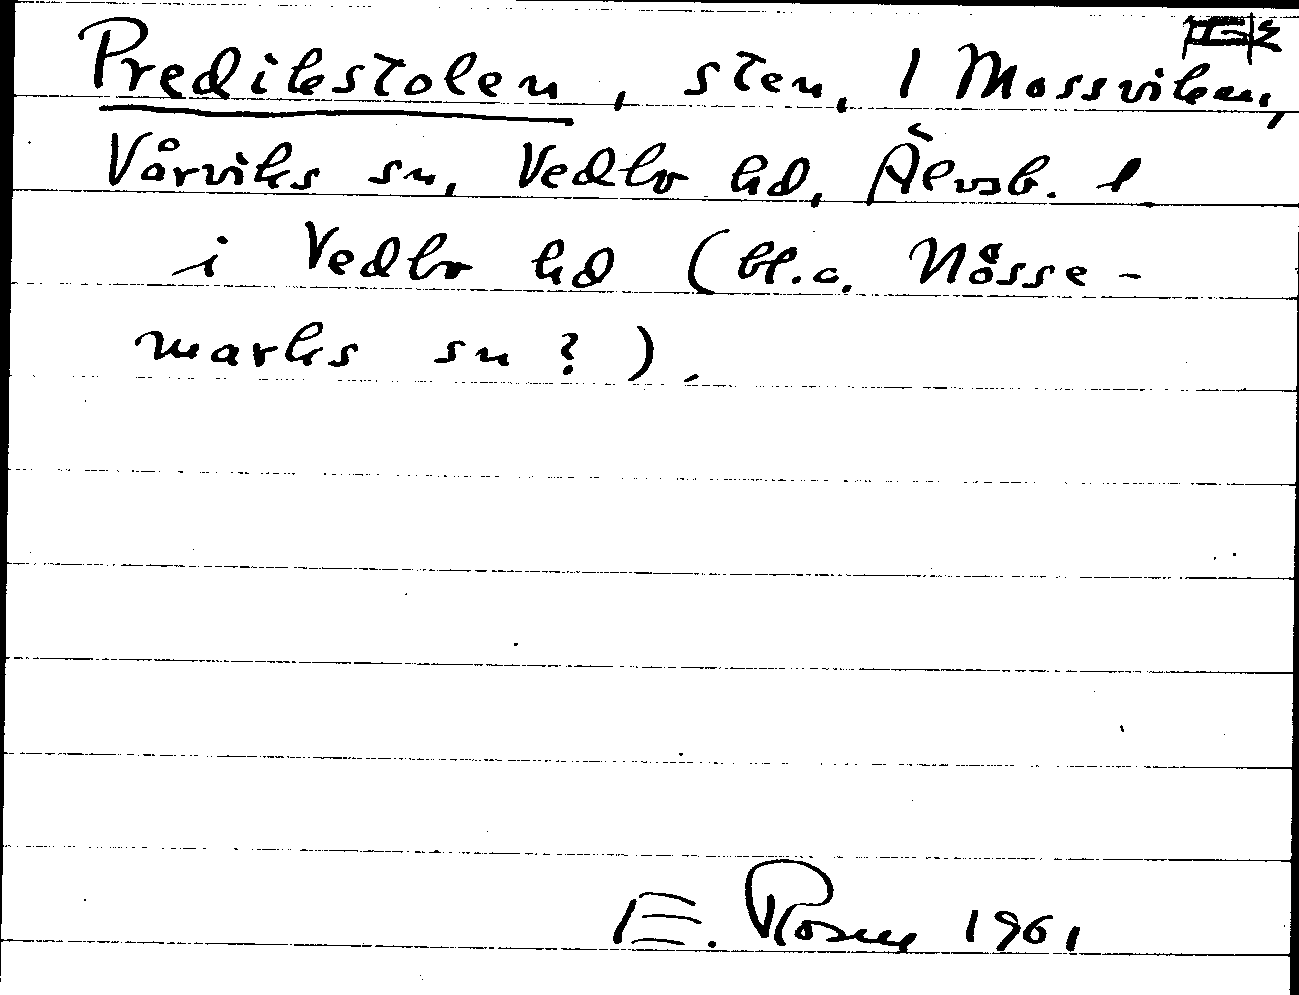 Predikstolen, sten, 1 Mossviken,
Vårviks sn, Vedbo hd, Älvsb. l.
i Vedbo hd (bl.a. Nösse-
marks sn?).
E. Rosell 1961